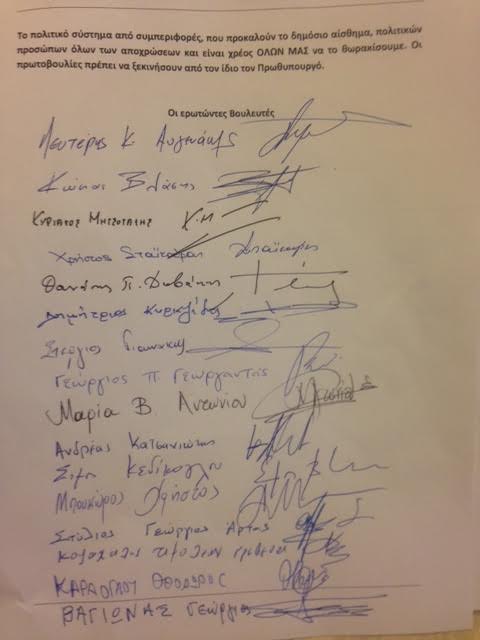 Το πολιτικό σύστημα από συμπεριφορές, που προκαλούν το δημόσιο αίσθημα, πολιτικών
προσώπων όλων των αποχρώσεων και είναι χρέος ΟΛΩΝ ΜΑΣ να το θωρακίσουμε. Οι
πρωτοβουλίες πρέπει να ξεκινήσουν από τον ίδιο τον Πρωθυπουργό.
Οι ερωτώντες Βουλευτές
Λευτέρης Κ. Αυγενάκης
Κώστας Βλάσης
ΚΥΡΙΑΚΟΣ ΜΗΤΣΟΤΑΚΗΣ Κ.Μ
Χρήστος Σταϊκούρας
Θανάσης Π. Δαβάκης
Δημήτριος Κυριαζίδης
Στέργιος Γιαννάκης
Γεώργιος Π. Γεωργαντάς
Μαρία Β. Αντωνίου
Ανδρέας Κατσανιώτης
Σίμος Κεδίκογλου
Μπουκώρος Χρήστος
Στύλιος Γεώργιος Άρτας
ΚΑΡΑΟΓΛΟΥ ΘΕΟΔΩΡΟΣ
ΒΑΓΙΩΝΑΣ Γεώργιος